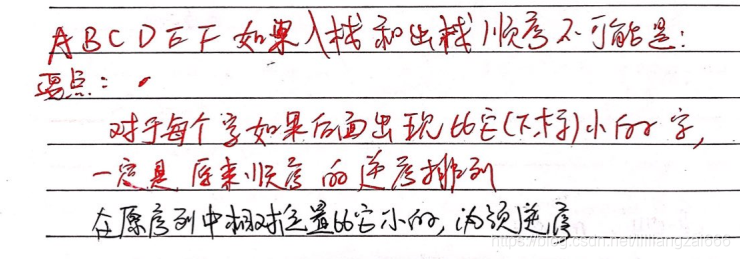 ABCDEF 如果入栈和出栈顺序不可能是:
要点:
对于每个字如果后面出现比它(下标)小的字,
一定是原来顺序的逆序排列
在原序列中相对位置比它小的,必须逆序
https://blog.csdn.net/liliangzai666